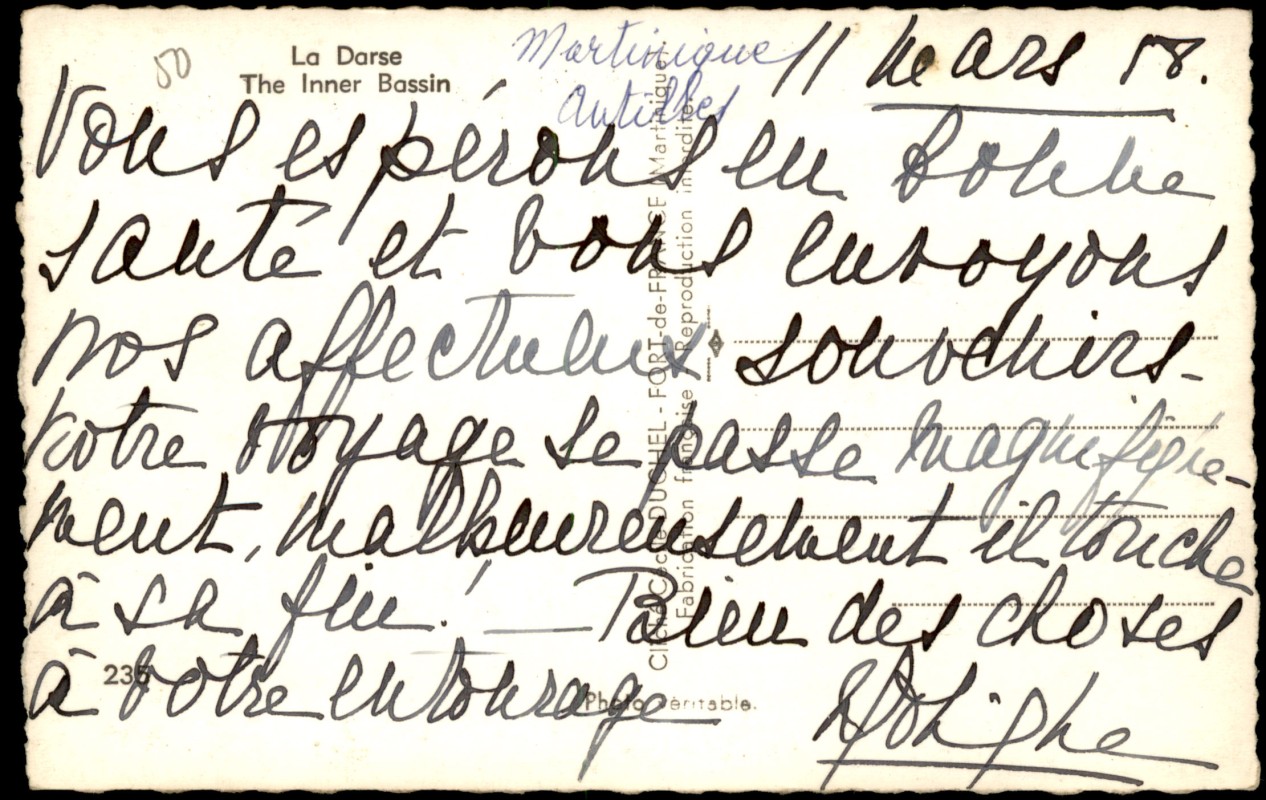 50
La Darse
The Inner Bassin
Martinique
Antilles
11 Mars 58.
Vous espérons en bonne
santé et vous envoyons
nos affectueux souvenirs -
Notre voyage se passe magnifique-
ment, malheureusement il touche
à sa fin. — Bien des choses
à votre entourage
235
Photo véritable.
Cliché Cécile DUCHEL - FORT-de-FRANCE (Martinique)
Fabrication française Reproduction interdite